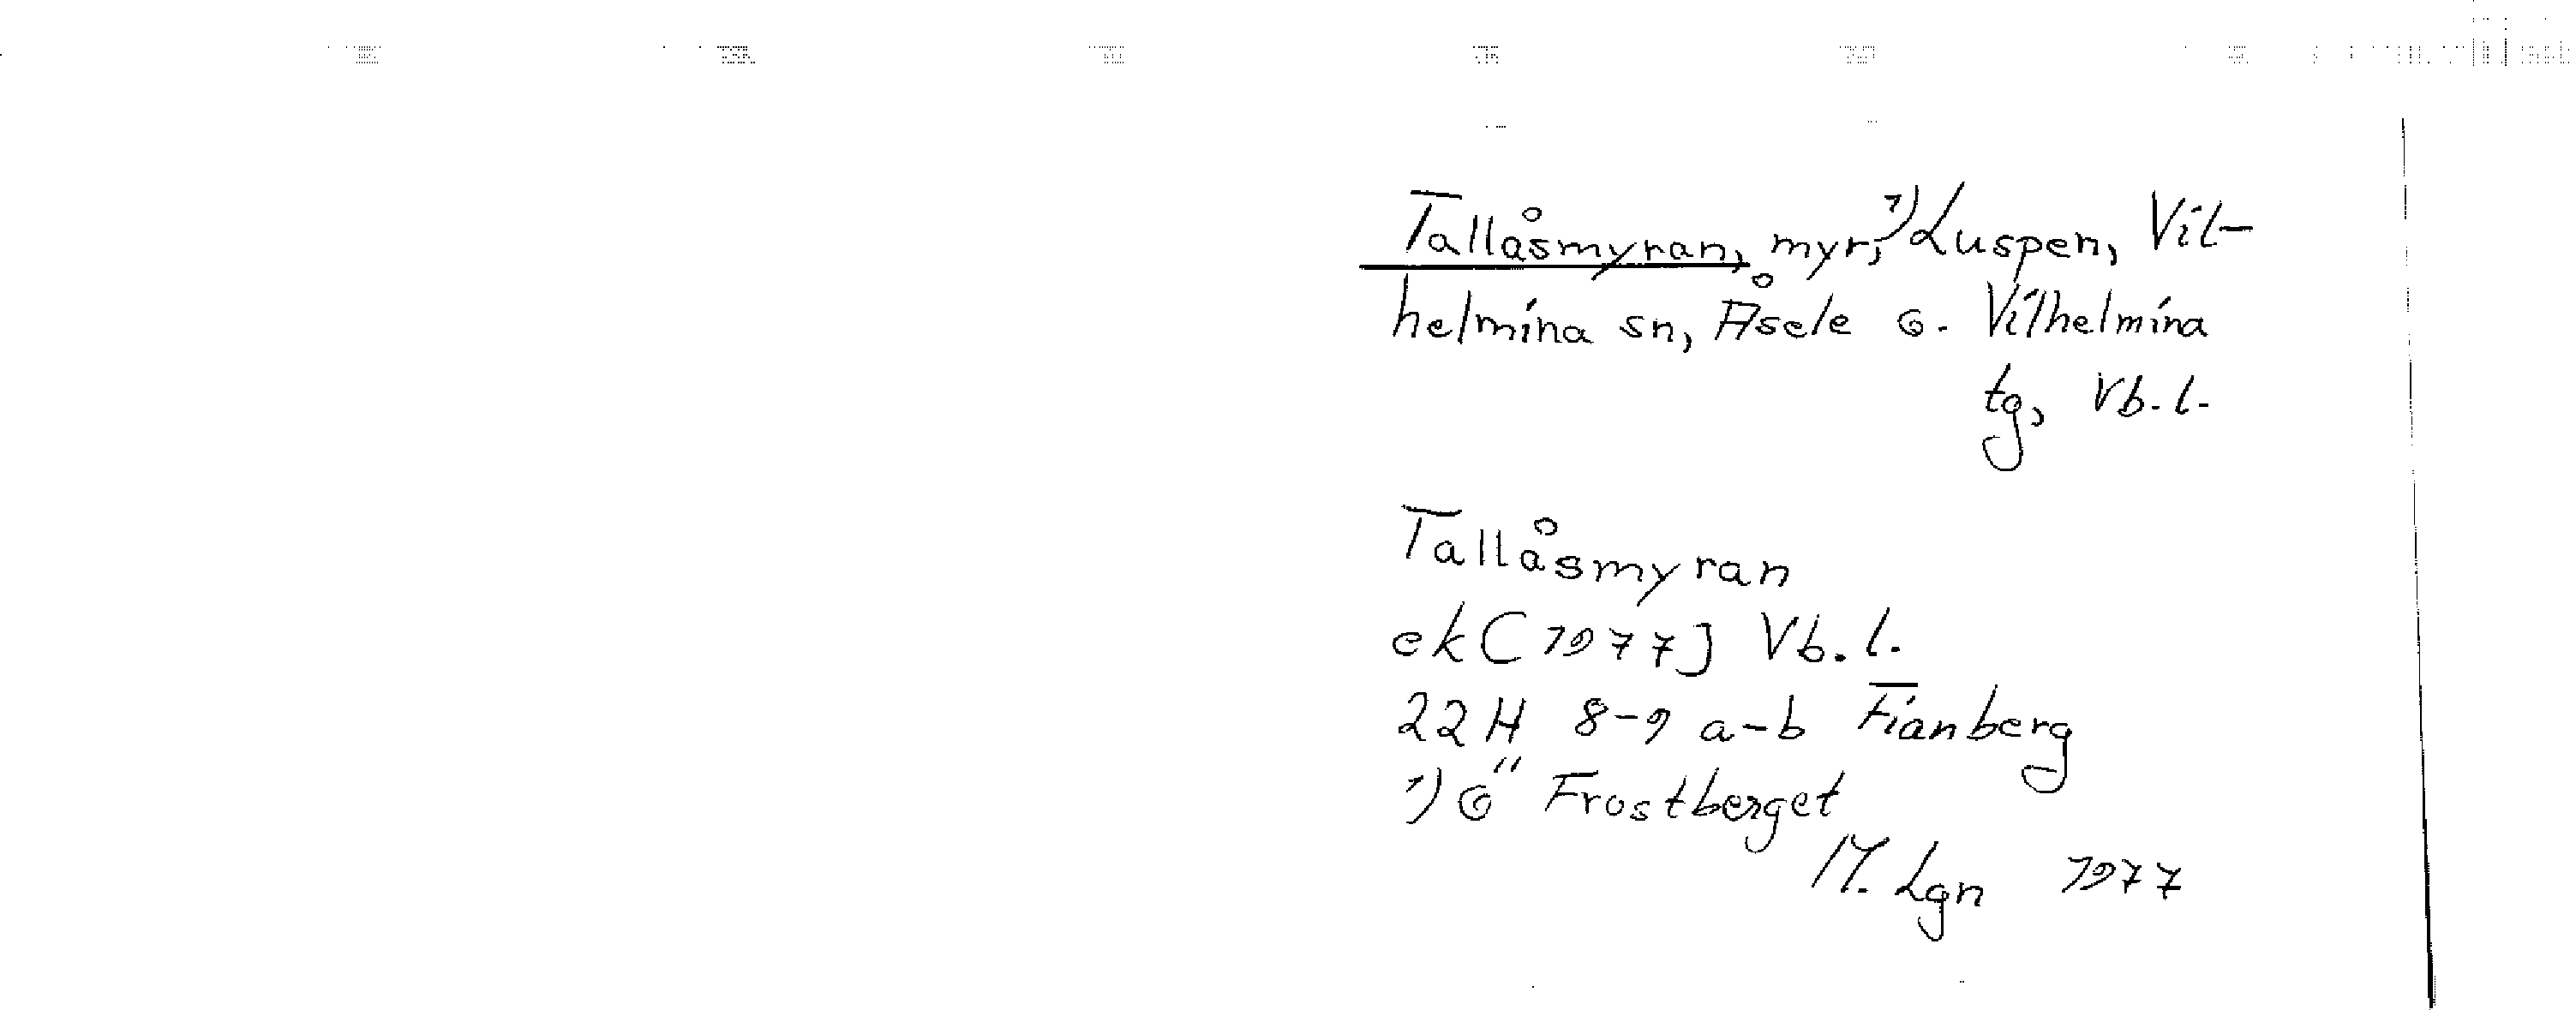 Tallåsmyran, myr, 1) Luspen, Vil-
helmina sn, Åsele o. Vilhelmina
tg, Vb. l.
Tallåsmyran
ek [1977] Vb. l.
22 H 8-9 a-b Fianberg
1) Ö Frostberget
M. Lgn 1977